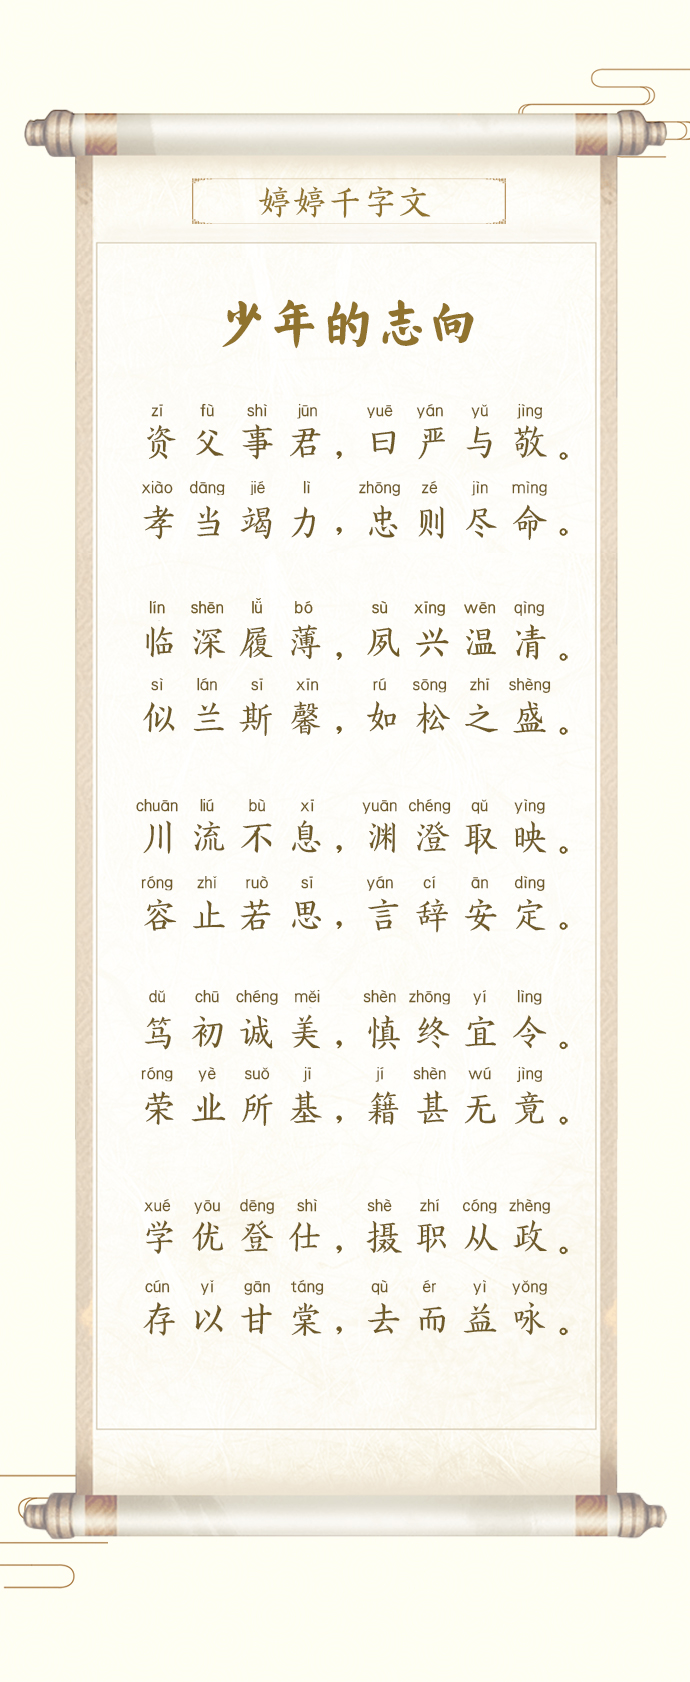 婷婷千字文
少年的志向
zī fù shì jūn yuē yán yǔ jìng
资父事君，曰严与敬。
xiào dāng jié lì zhōng zé jìn mìng
孝当竭力，忠则尽命。
lín shēn lǚ bó sù xīng wēn qìng
临深履薄，夙兴温凊。
sì lán sī xīn rú sōng zhī shèng
似兰斯馨，如松之盛。
chuān liú bù xī yuān chéng qǔ yìng
川流不息，渊澄取映。
róng zhǐ ruò sī yán cí ān dìng
容止若思，言辞安定。
dǔ chū chéng měi shèn zhōng yí lìng
笃初诚美，慎终宜令。
róng yè suǒ jī jí shèn wú jìng
荣业所基，籍甚无竟。
xué yōu dēng shì shè zhí cóng zhèng
学优登仕，摄职从政。
cún yǐ gān táng qù ér yì yǒng
存以甘棠，去而益咏。